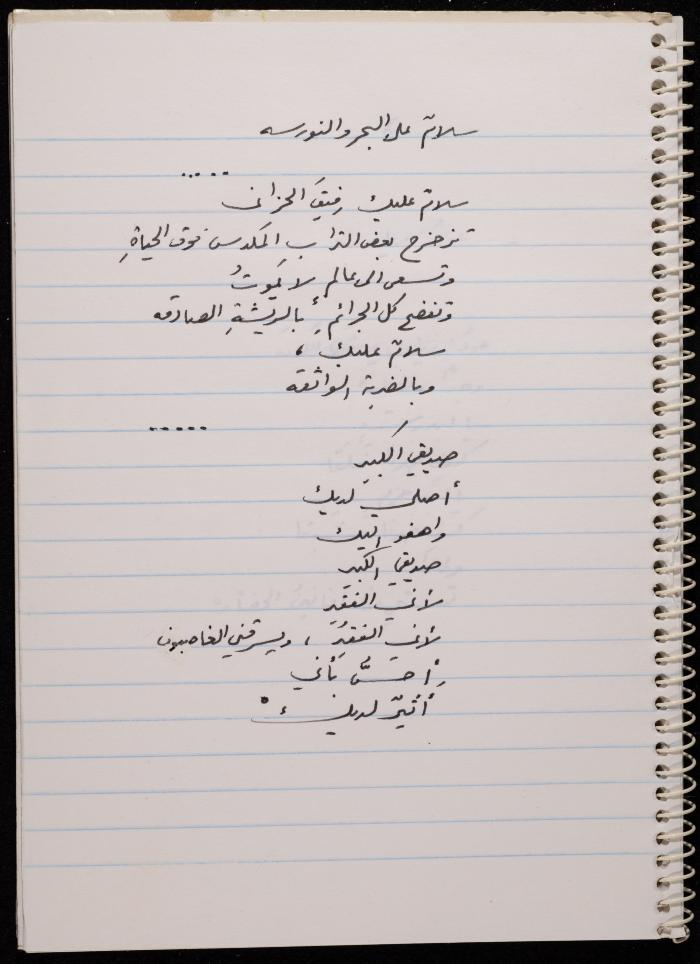 سلامٌ على البحر والنورسه
.....
سلامٌ عليك رفيقَ الحزانى
تزحزح بعض التراب المكدس فوق الحياةِ
وتسعى الى عالمٍ لا يموتُ
وتفضح كل الجرائمِ بالريشةِ الصادقه
سلامٌ عليك ،
وبالضربة الواثقه
.....
صديقي الكبير
أصلي لديك
واهفو اليك
صديقي الكبير
لأني الفقير
لأني الفقيرُ ، ويسرقني الغاصبون
أحسُّ بأني
أثيرٌ لديك .